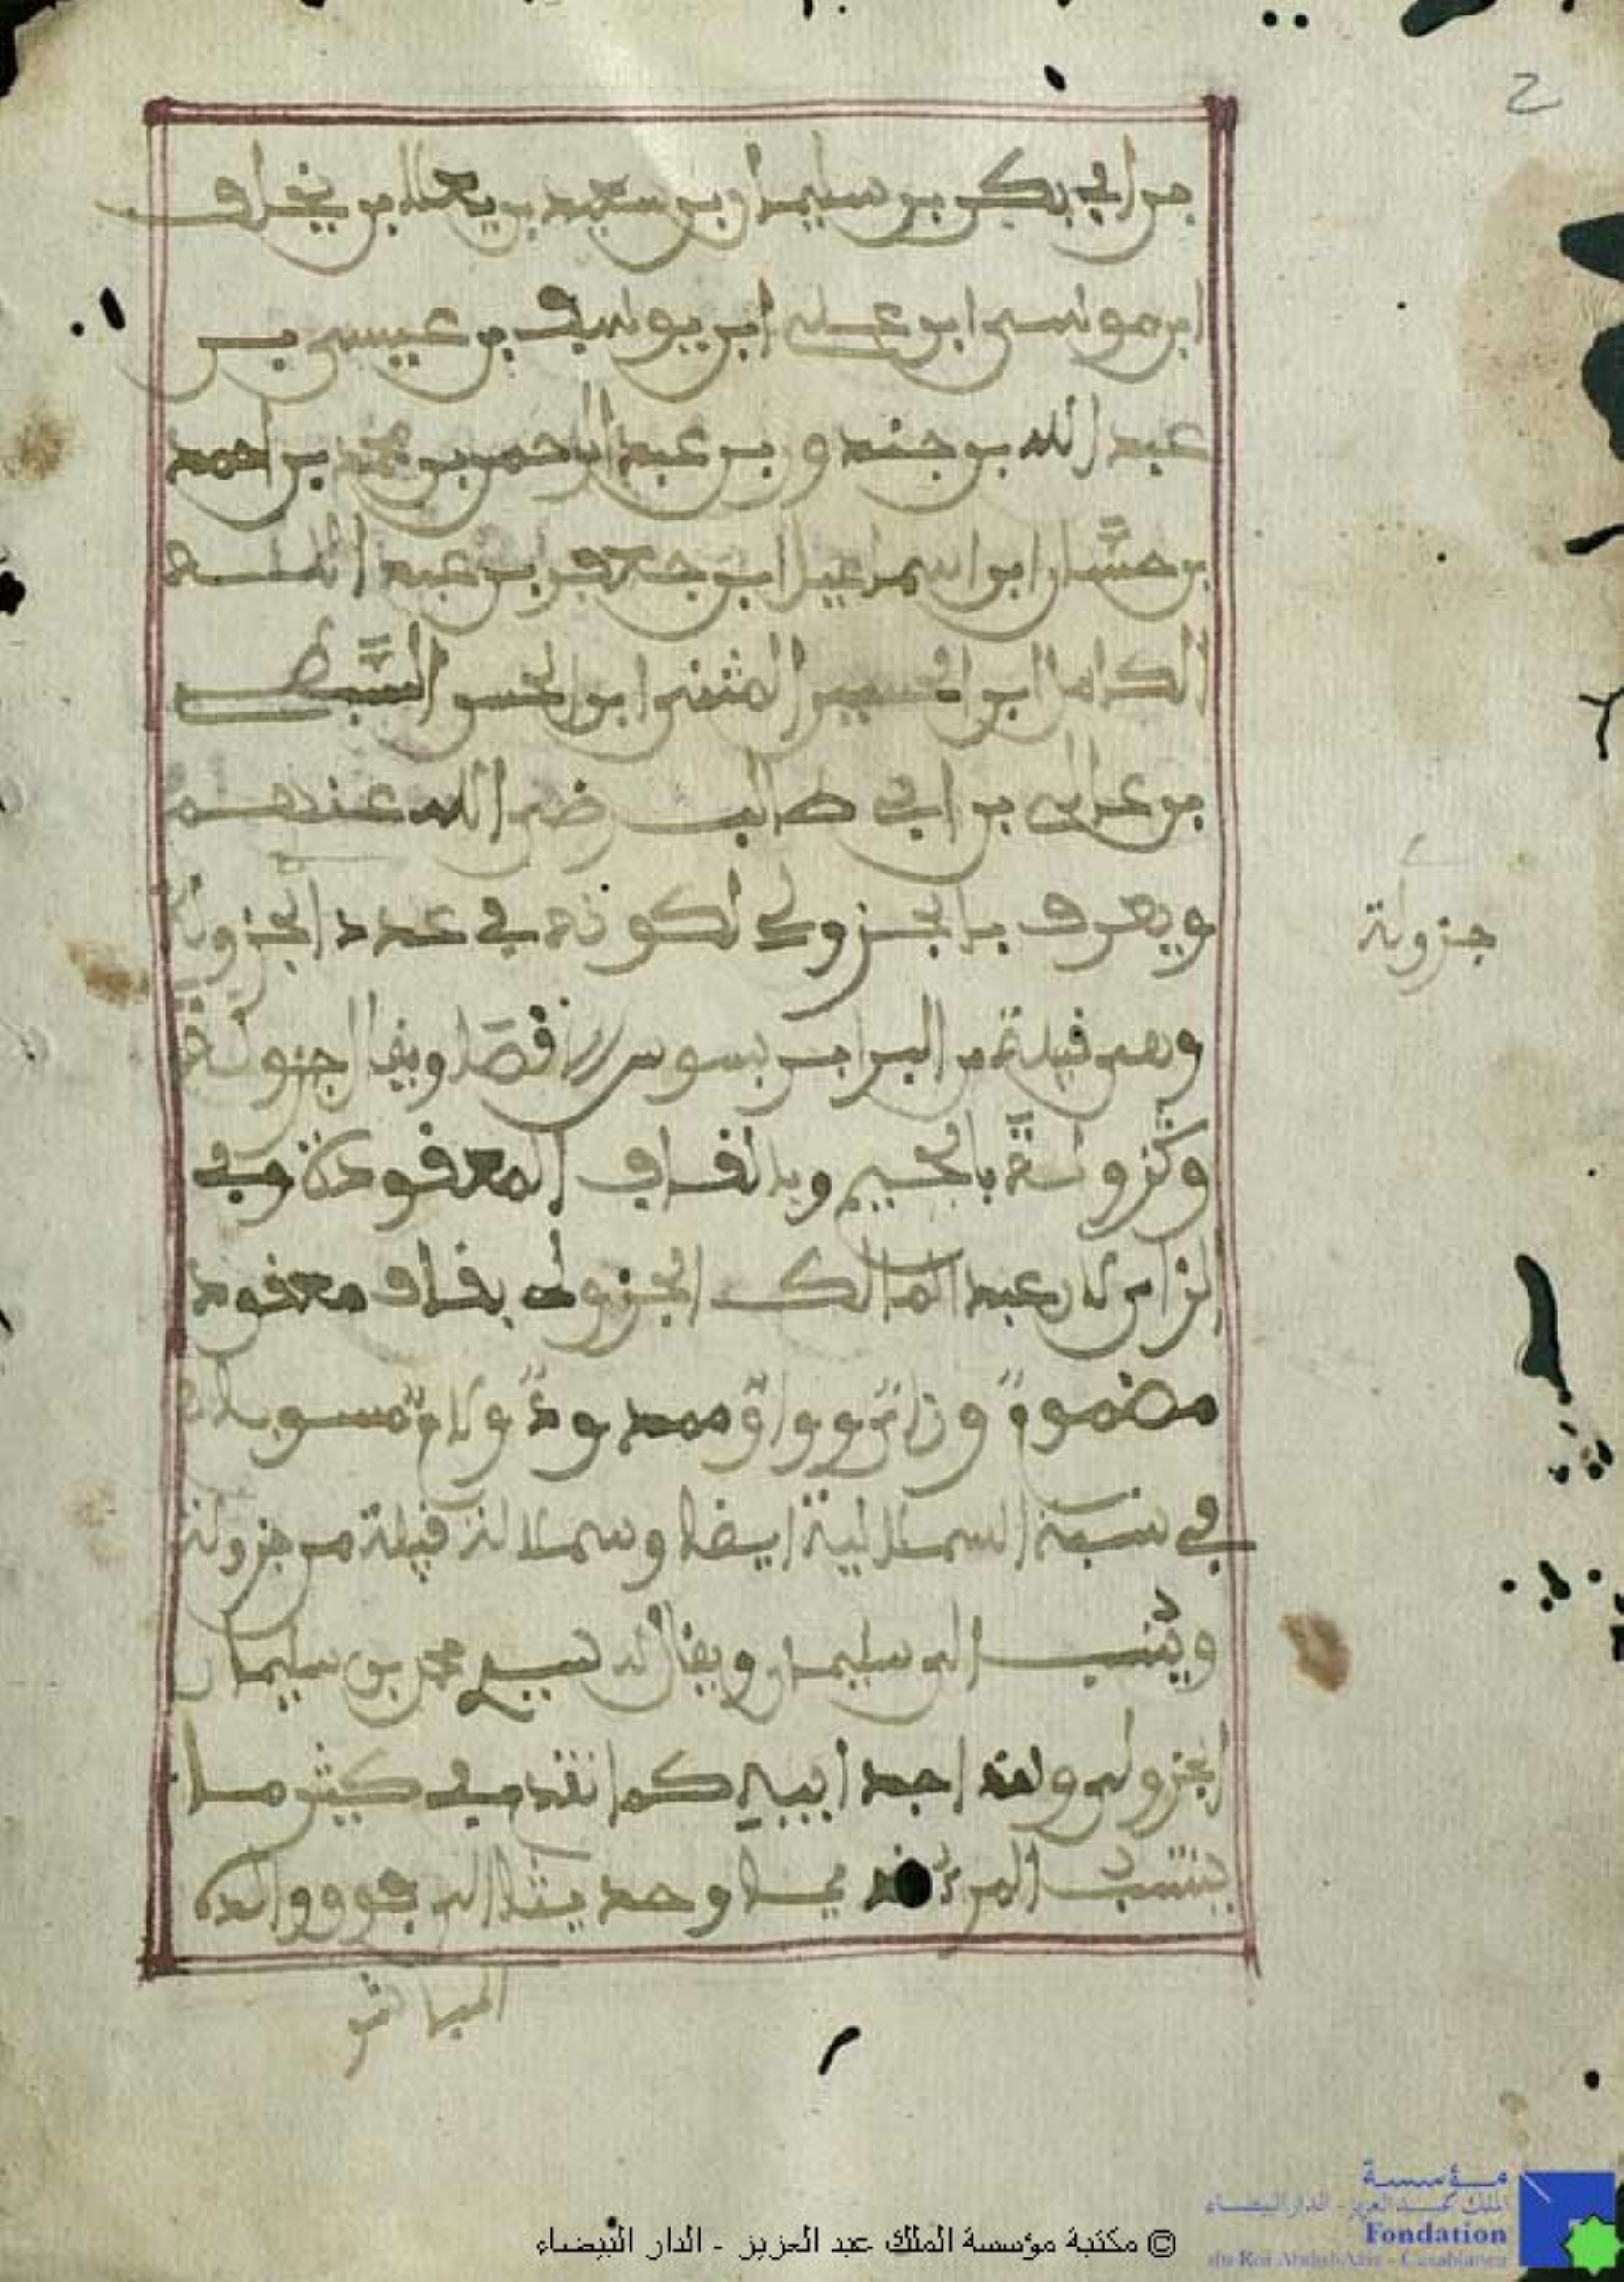 بن ابي بكر بن سليمان بن سعيد بن يعلا بن يخلف
ابن موسى ابن علي ابن يوسف بن عيسى بن
عبد الله بن جندوز بن عبد الرحمن بن محمد بن احمد
بن حسان ابن اسماعيل ابن جعفر بن عبد الله
الكامل ابن الحسن المثنى ابن الحسن السبط
بن علي بن ابي طالب رضي الله عنهم
ويعرف بالجزولي لكونه في عدد الجزولة
وهم قبيلة من البرابر بسوس الاقصا ويقال جزولة
وكزولة بالجيم وبالقاف المعقودة وفي
لابن عبد المالك الجزولي بقاف معقود
مضموم وزاي وواو ممدود ولام منسوب
في نسبه السملالية ايضا وسملالة قبيلة من جزولة
وينسب الى سليمان ويقال له سيدي محمد بن سليمان
الجزولي وانه اجد ابيه كما تقدم في كثير ما
ينتسب المرء قديما وحديثا الى جده ووالده
المباشر
جزولة
2
© مكتبة مؤسسة الملك عبد العزيز - الدار البيضاء
مؤسسة
الملك عبد العزيز - الدار البيضاء
Fondation
du Roi Abdul-Aziz - Casablanca